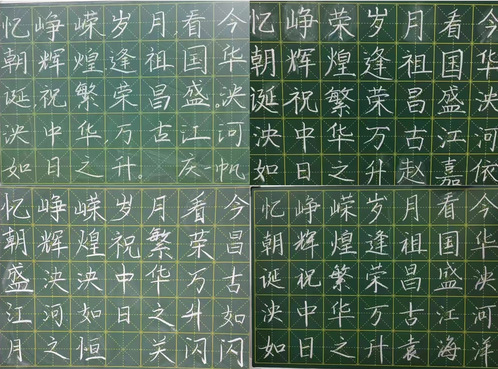 忆峥嵘岁月,看今
朝辉煌逢祖国华
诞,祝繁荣昌盛。泱
泱中华,万古江河
如日之升。 庆一帆
忆峥荣岁月看今
朝辉煌逢祖国华
诞祝繁荣昌盛泱
泱中华万古江河
如日之升赵嘉依
忆峥嵘岁月看今
朝辉煌祝繁荣昌
盛泱泱中华万古
江河如日之升如
月之恒 关闪闪
忆峥嵘岁月看今
朝辉煌逢祖国华
诞祝繁荣昌盛泱
泱中华万古江河
如日之升袁海洋